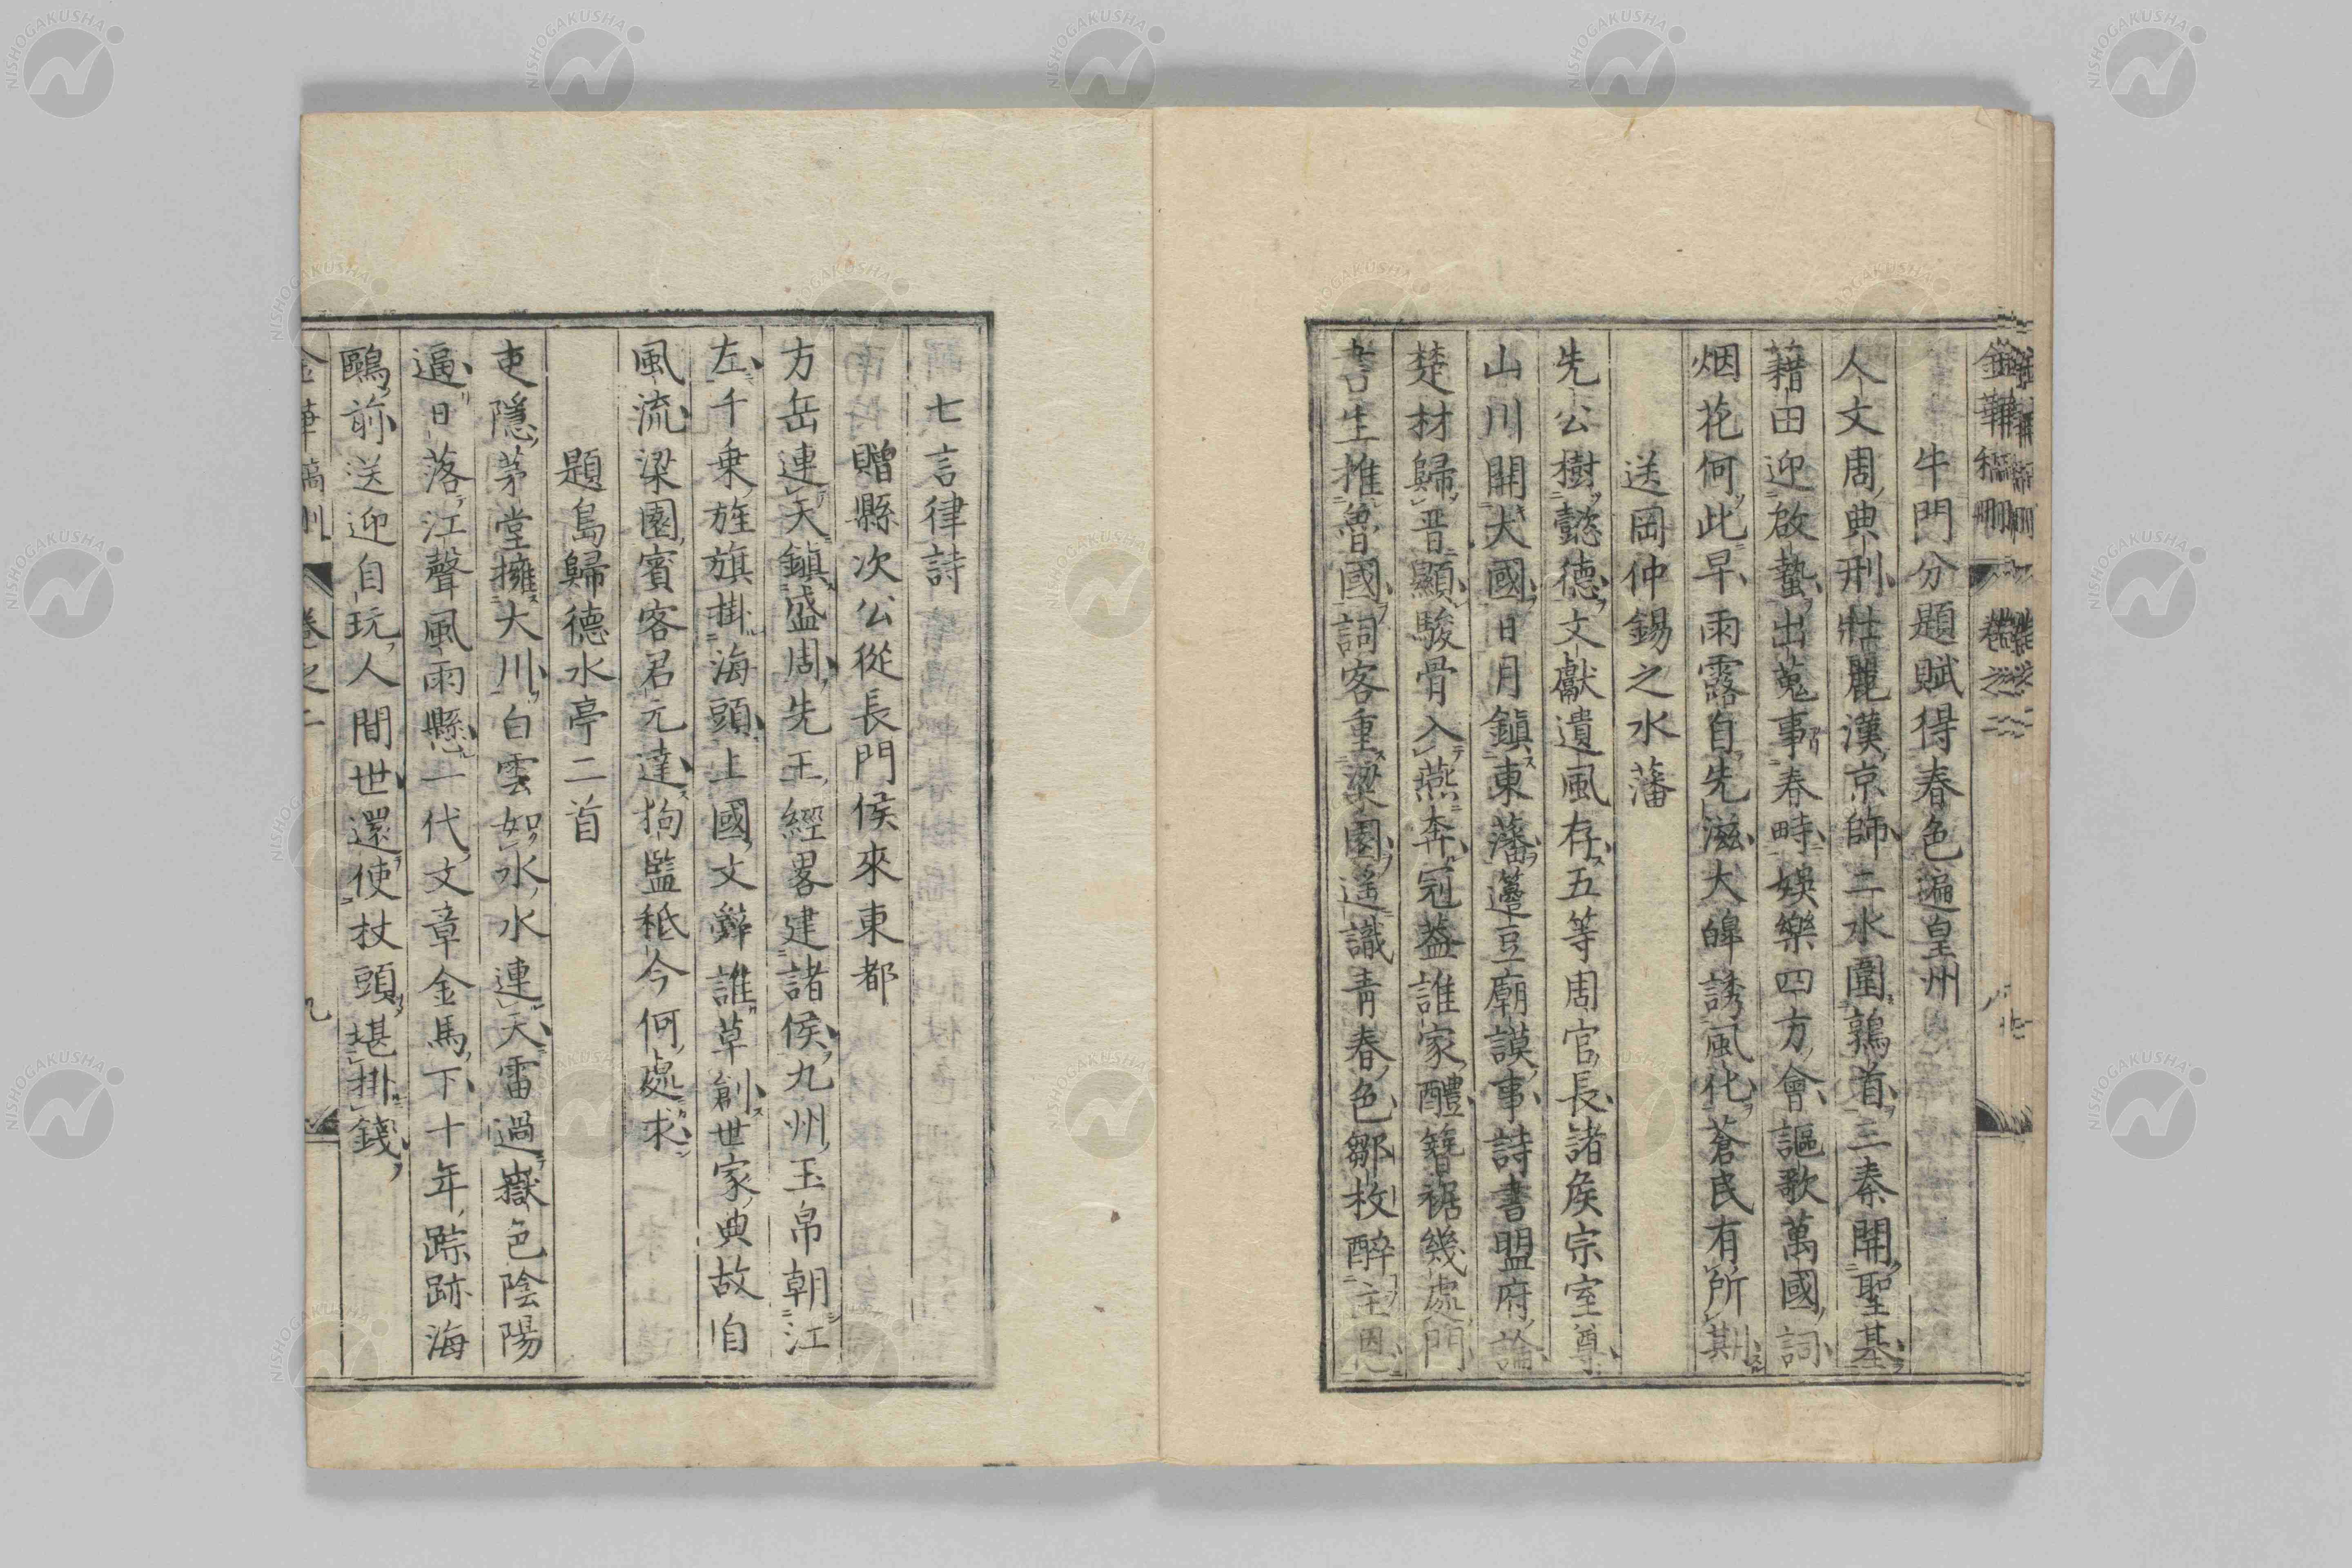 金華稿刪 卷之二 八
牛門分題賦得春色遍皇州
人文周典刑壯麗漢京師二水圍鶉首三秦開聖基
藉田迎啟蟄出蒐事春畤娛樂四方會謳歌萬國詞
烟花何此早雨露自先滋大皥誘風化蒼民有所期
送岡仲錫之水藩
先公樹懿德文獻遺風存五等周官長諸矦宗室尊
山川開犬國日月鎮東藩籩豆廟謨事詩書盟府論
楚材歸晋顯駿骨入燕奔冠葢誰家醴簪裾幾處門
書生推魯國詞客重梁園遙識青春色鄒枚醉主恩
七言律詩
贈縣次公從長門侯來東都
方岳連天鎮盛周先王經畧建諸侯九州玉帛朝江
左千乘旌旗掛海頭上國文辭誰草創世家典故自
風流梁園賓客君元達狗監秪今何處求
題島歸德水亭二首
吏隱茅堂擁大川白雲如水水連天雷過嶽色陰陽
逼日落江聲風雨懸一代文章金馬下十年踪跡海
鷗前送迎自玩人間世還使杖頭堪掛錢
金華稿刪 卷之二 九
NISHOGAKUSHA